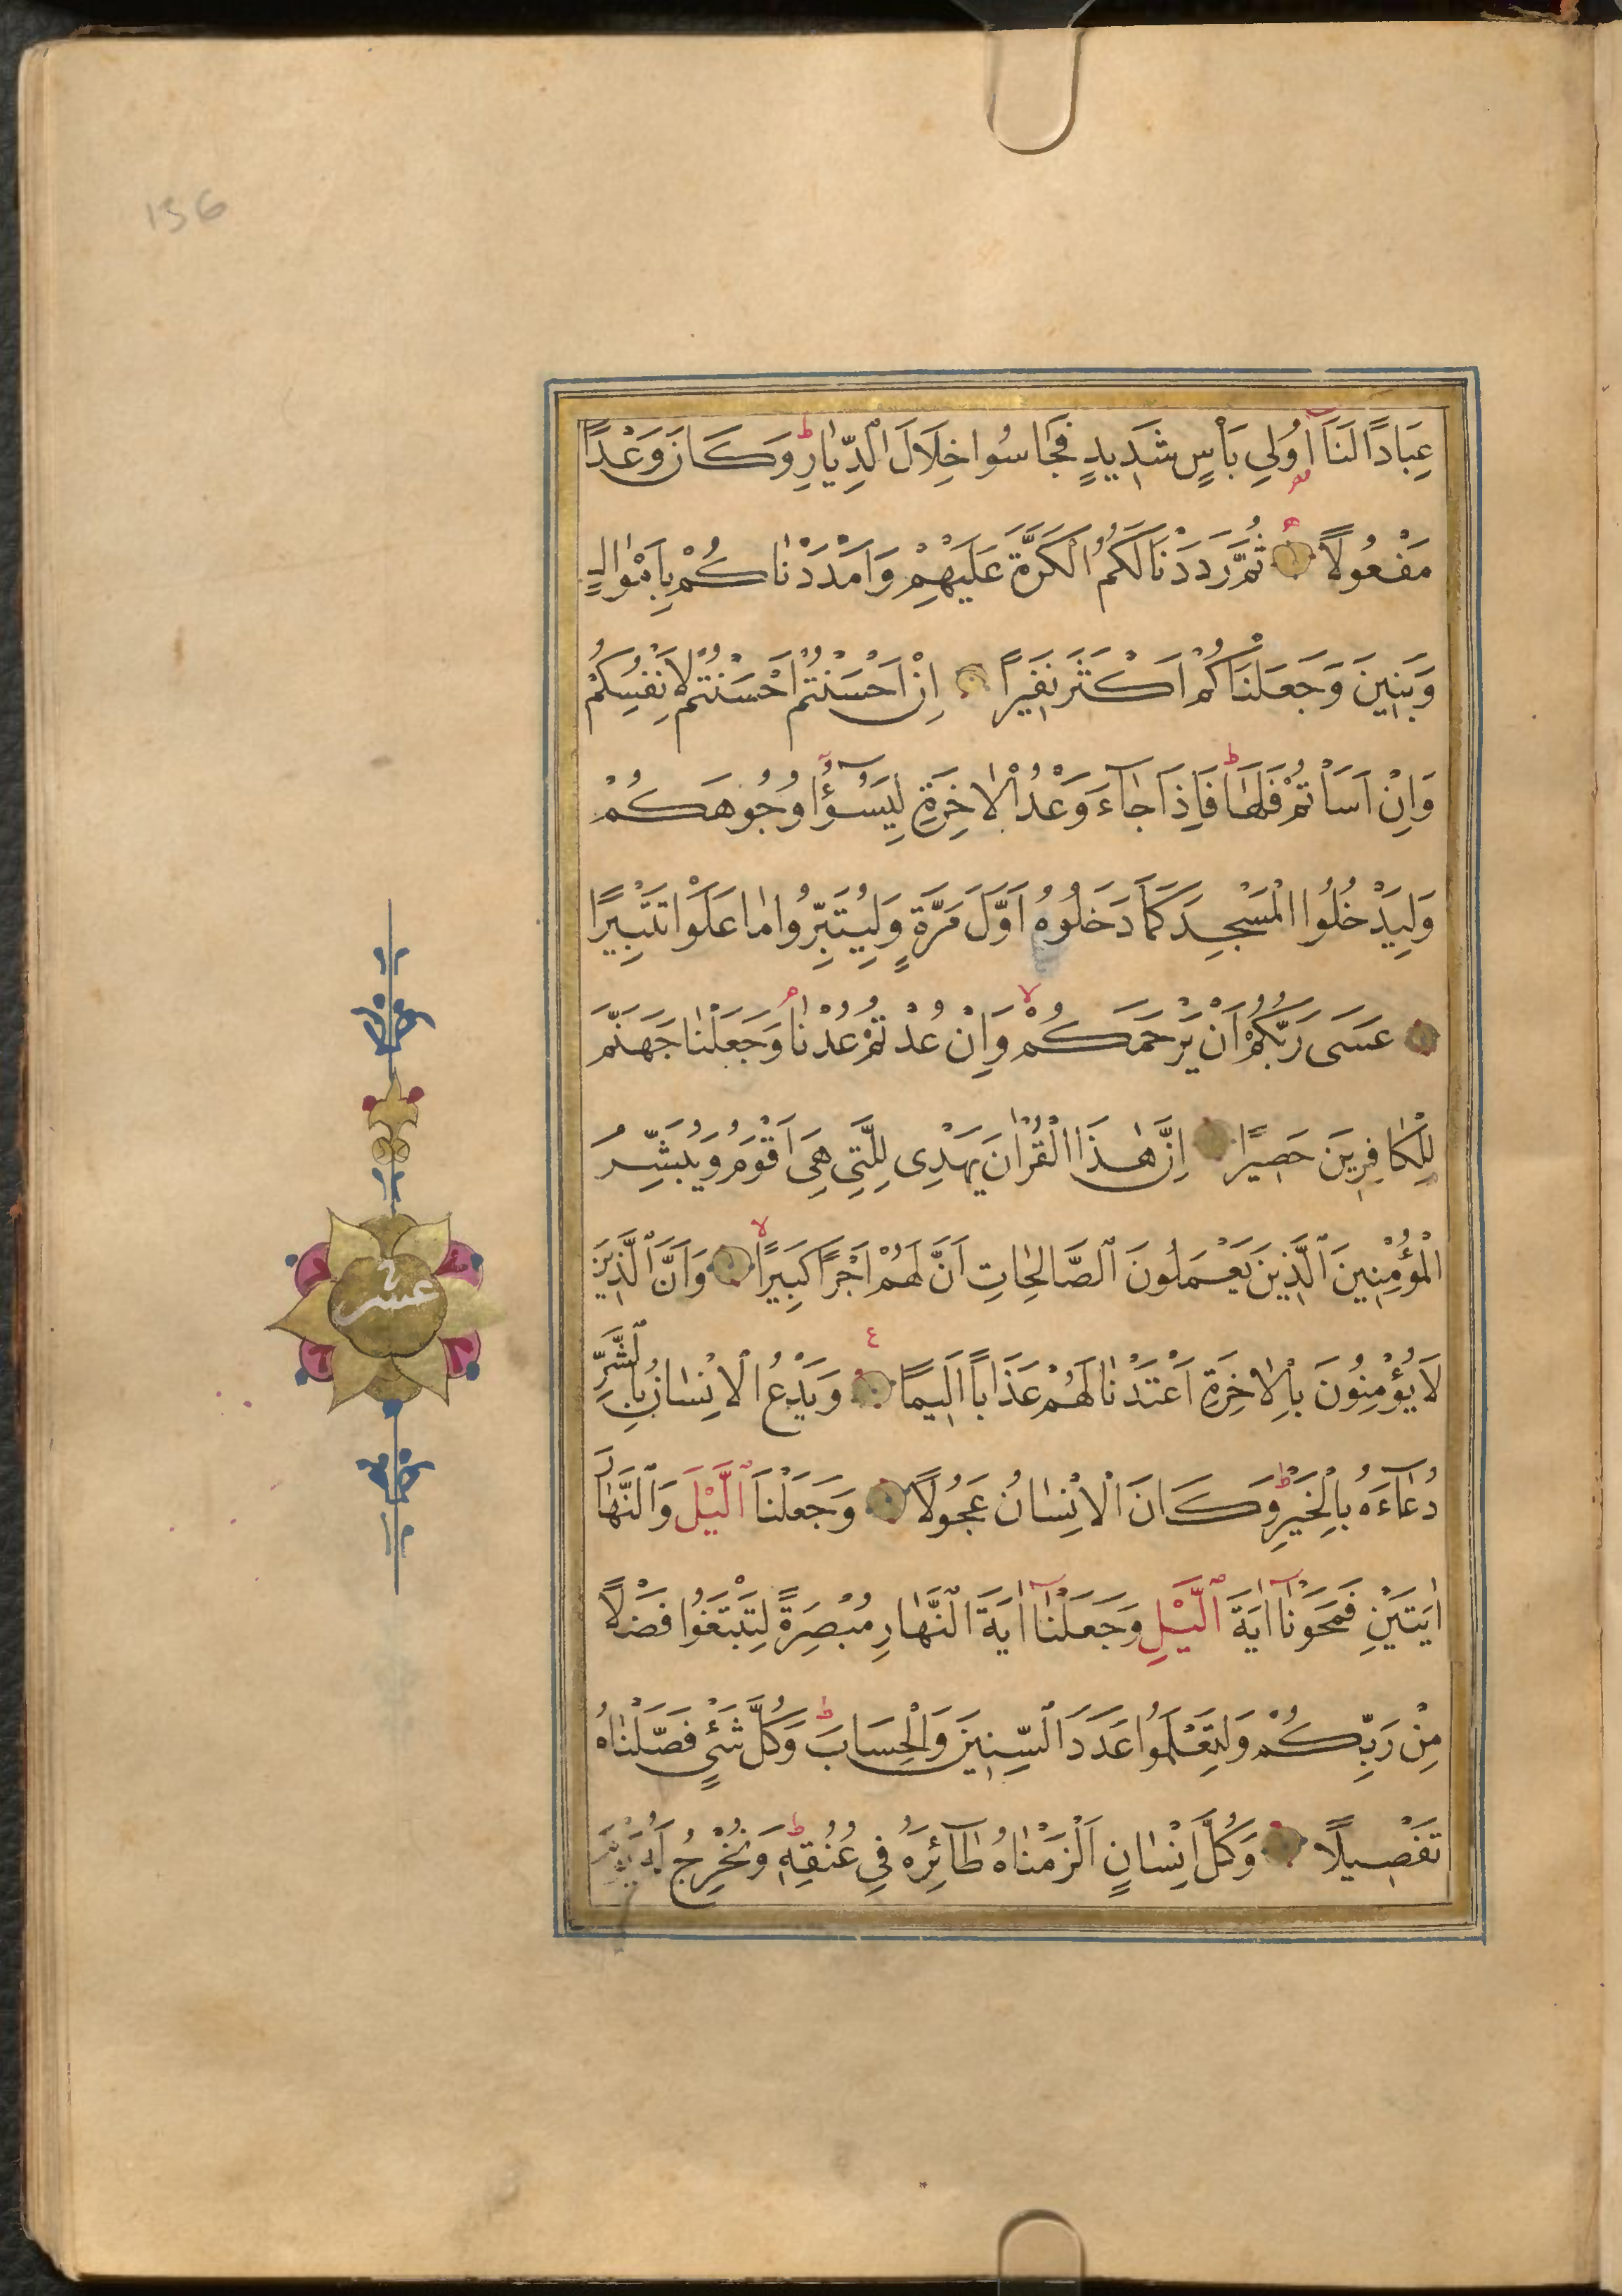 136
عِبَادًا لَنَٓا اُولِي بَأْسٍ شَدِيدٍ فَجَاسُوا خِلَالَ الدِّيَارِ ط وَكَانَ وَعْدًا
مَفْعُولًا ثُمَّ رَدَدْنَا لَكُمُ الْكَرَّةَ عَلَيْهِمْ وَاَمْدَدْنَاكُمْ بِاَمْوَالٍ
وَبَنِينَ وَجَعَلْنَاكُمْ اَكْثَرَ نَفِيرًا اِنْ اَحْسَنْتُمْ اَحْسَنْتُمْ لِاَنْفُسِكُمْ
وَاِنْ اَسَاْتُمْ فَلَهَا ط فَاِذَا جَٓاءَ وَعْدُ الْاٰخِرَةِ لِيَسُٓؤُا وُجُوهَكُمْ
وَلِيَدْخُلُوا الْمَسْجِدَ كَمَا دَخَلُوهُ اَوَّلَ مَرَّةٍ وَلِيُتَبِّرُوا مَا عَلَوْا تَتْبِيرًا
عَسَى رَبُّكُمْ اَنْ يَرْحَمَكُمْ لا وَاِنْ عُدْتُمْ عُدْنَا م وَجَعَلْنَا جَهَنَّمَ
لِلْكَافِرِينَ حَصِيرًا اِنَّ هٰذَا الْقُرْاٰنَ يَهْدِى لِلَّتِي هِيَ اَقْوَمُ وَيُبَشِّرُ
الْمُؤْمِنِينَ الَّذِينَ يَعْمَلُونَ الصَّالِحَاتِ اَنَّ لَهُمْ اَجْرًا كَبِيرًا لا وَاَنَّ الَّذِينَ
عشر
لَا يُؤْمِنُونَ بِالْاٰخِرَةِ اَعْتَدْنَا لَهُمْ عَذَابًا اَلِيمًا ع وَيَدْعُ الْاِنْسَانُ بِالشَّرِّ
دُعَٓاءَهُ بِالْخَيْرِ ط وَكَانَ الْاِنْسَانُ عَجُولًا وَجَعَلْنَا الَّيْلَ وَالنَّهَارَ
اٰيَتَيْنِ فَمَحَوْنَٓا اٰيَةَ الَّيْلِ وَجَعَلْنَٓا اٰيَةَ النَّهَارِ مُبْصِرَةً لِتَبْتَغُوا فَضْلًا
مِنْ رَبِّكُمْ وَلِتَعْلَمُوا عَدَدَ السِّنِينَ وَالْحِسَابَ ط وَكُلَّ شَيْءٍ فَصَّلْنَاهُ
تَفْصِيلًا وَكُلَّ اِنْسَانٍ اَلْزَمْنَاهُ طَٓائِرَهُ فِي عُنُقِهِ ط وَنُخْرِجُ لَهُ يَوْمَ